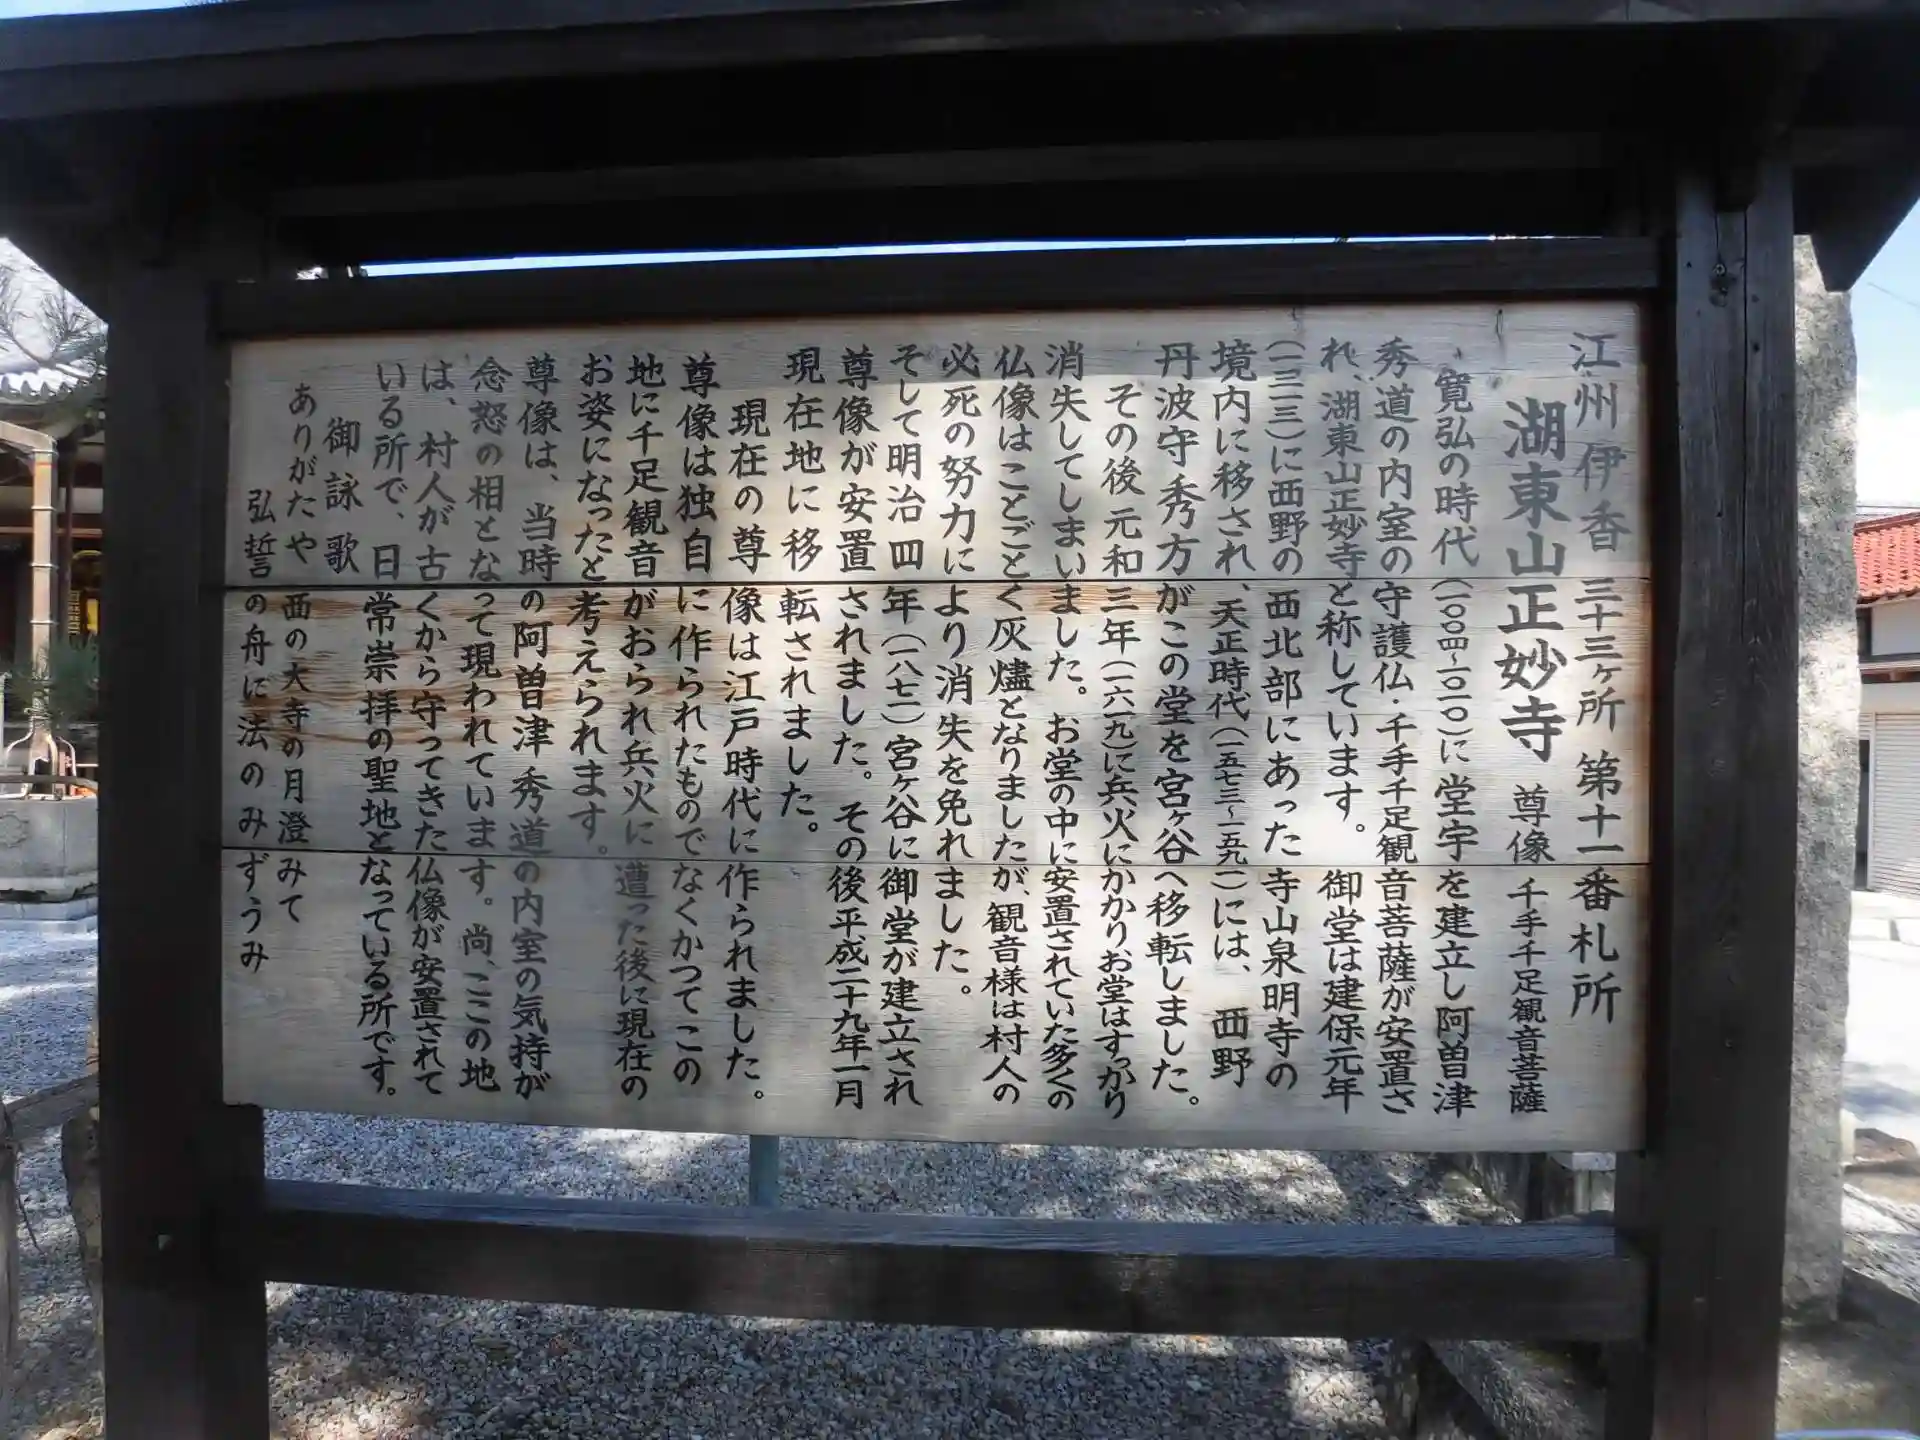 江州伊香三十三ヶ所第十一番札所
湖東山正妙寺 尊像 千手千足観音菩薩
寛弘の時代(一〇〇四~一〇一〇)に堂宇を建立し阿曽津
秀道の内室の守護仏・千手千足観音菩薩が安置さ
れ、湖東山正妙寺と称しています。御堂は建保元年
(一二一三)に西野の西北部にあった寺山泉明寺の
境内に移され、天正時代(一五七三~一五九一)には、西野
丹波守秀方がこの堂を宮ヶ谷へ移転しました。
その後元和三年(一六一九)に兵火にかかりお堂はすっかり
消失してしまいました。お堂の中に安置されていた多くの
仏像はことごとく灰燼となりましたが、観音様は村人の
必死の努力により消失を免れました。
そして明治四年(一八七一)宮ヶ谷に御堂が建立され
尊像が安置されました。その後平成二十九年一月
現在地に移転されました。
現在の尊像は江戸時代に作られました。
尊像は独自に作られたものでなくかつてこの
地に千足観音がおられ兵火に遭った後に現在の
お姿になったと考えられます。
尊像は、当時の阿曽津秀道の内室の気持が
念怒の相となって現われています。尚、ここの地
は、村人が古くから守ってきた仏像が安置されて
いる所で、日常崇拝の聖地となっている所です。
御詠歌
ありがたや西の大寺の月澄みて
弘誓の舟に法のみずうみ